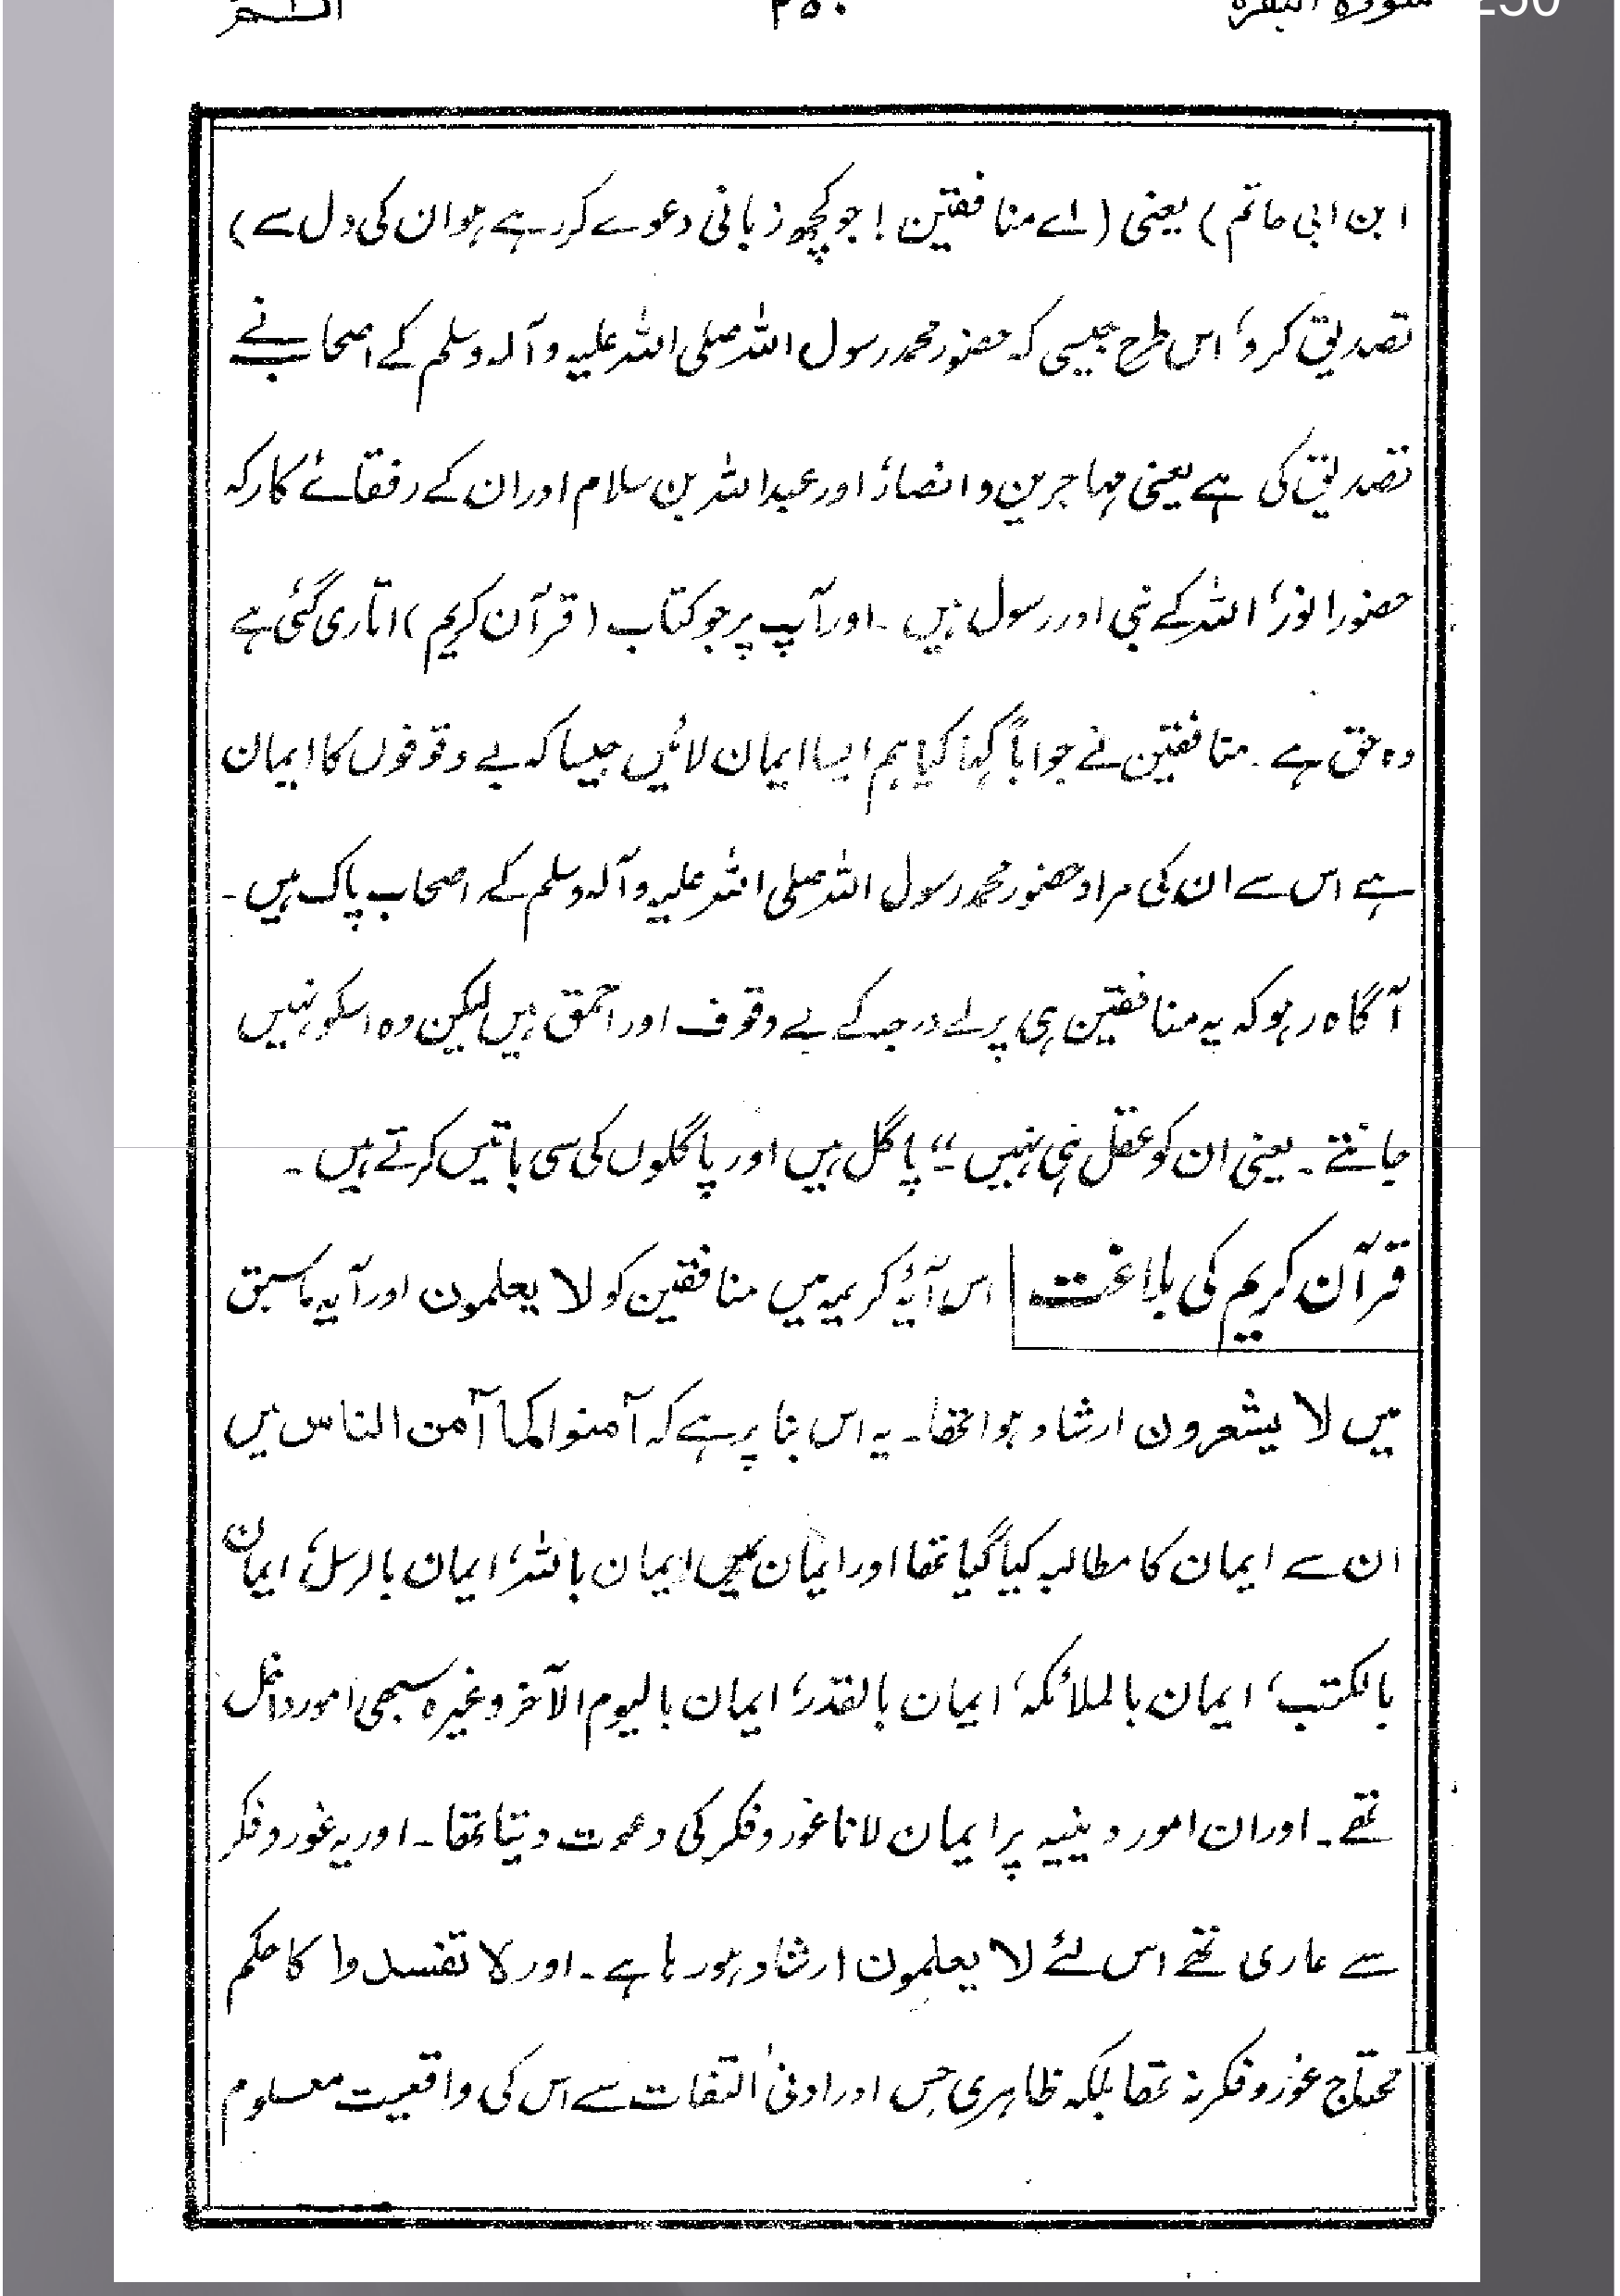 سورۃ البقرہ ۲۵۰ الٓـمّٓ
250
ابن ابی حاتم) یعنی (اے منافقین! جو کچھ زبانی دعوے کر رہے ہو ان کی دل سے)
تصدیق کرو، اس طرح جیسی کہ حضور محمد رسول اللہ صلی اللہ علیہ وآلہ وسلم کے اصحاب نے
تصدیق کی ہے یعنی مہاجرین و انصار، اور عبداللہ بن سلام اور ان کے رفقائے کار کہ
حضور انور، اللہ کے نبی اور رسول ہیں ۔ اور آپ پر جو کتاب (قرآن کریم) اتاری گئی ہے
وہ حق ہے ۔ منافقین نے جواباً کہا کیا ہم ایسا ایمان لائیں جیسا کہ بے وقوفوں کا ایمان
ہے اس سے ان کی مراد حضور محمد رسول اللہ صلی اللہ علیہ وآلہ وسلم کے اصحاب پاک ہیں ۔
آگاہ رہو کہ یہ منافقین ہی پرلے درجہ کے بے وقوف اور احمق ہیں لیکن وہ اسکو نہیں
جانتے ۔ یعنی ان کو عقل ہی نہیں ۔" پاگل ہیں اور پاگلوں کی سی باتیں کرتے ہیں ۔
قرآن کریم کی بلاغت اس آیۂ کریمہ میں منافقین کو لا یعلمون اور آیہ ماسبق
میں لا یشعرون ارشاد ہوا تھا ۔ یہ اس بنا پر ہے کہ آمنوا کما آمن الناس میں
ان سے ایمان کا مطالبہ کیا گیا تھا اور ایمان میں ایمان باللہ، ایمان بالرسل، ایمان
بالکتب، ایمان بالملائکہ، ایمان بالقدر، ایمان بالیوم الآخر وغیرہ سبھی امور داخل
تھے ۔ اور ان امور دینیہ پر ایمان لانا غور و فکر کی دعوت دیتا تھا ۔ اور یہ غور و فکر
سے عاری تھے اس لئے لا یعلمون ارشاد ہو رہا ہے ۔ اور لا تفسدوا کا حکم
محتاج غور و فکر نہ تھا بلکہ ظاہری حس اور ادنیٰ التفات سے اس کی واقعیت معلوم